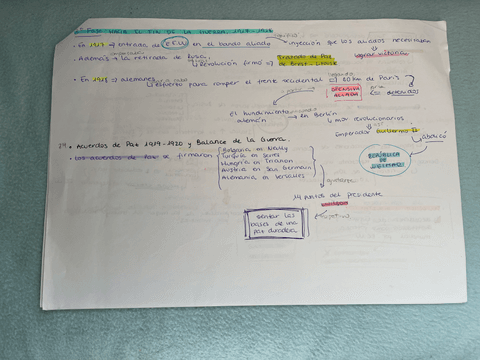 Fase HACIA EL FIN DE LA GUERRA. 1917-1918
- En 1917 → entrada de EEUU en el bando aliado inyección que los aliados necesitaban
lograr victoria
- Además a la retirada de Rusia,
Revolución firmó → Tratado de Paz
de Brest-Litovsk
- En 1918 → alemanes
esfuerzo para romper el frente occidental
40 km de París
OFENSIVA
ALIADA
detenidos
el hundimiento
alemán
→ en Berlín
→ mov. revolucionarios
Emperador Guillermo II
abdicó
REPÚBLICA
DE
WEIMAR
Acuerdos de Paz 1919-1920 y Balance de la Guerra.
- Los acuerdos de Paz se firmaron
Bulgaria en Neuilly
Turquía en Sèvres
Hungría en Trianon
Austria en San Germain
Alemania en Versalles
14 puntos del presidente
sentar las
bases de una
paz duradera
objetivo